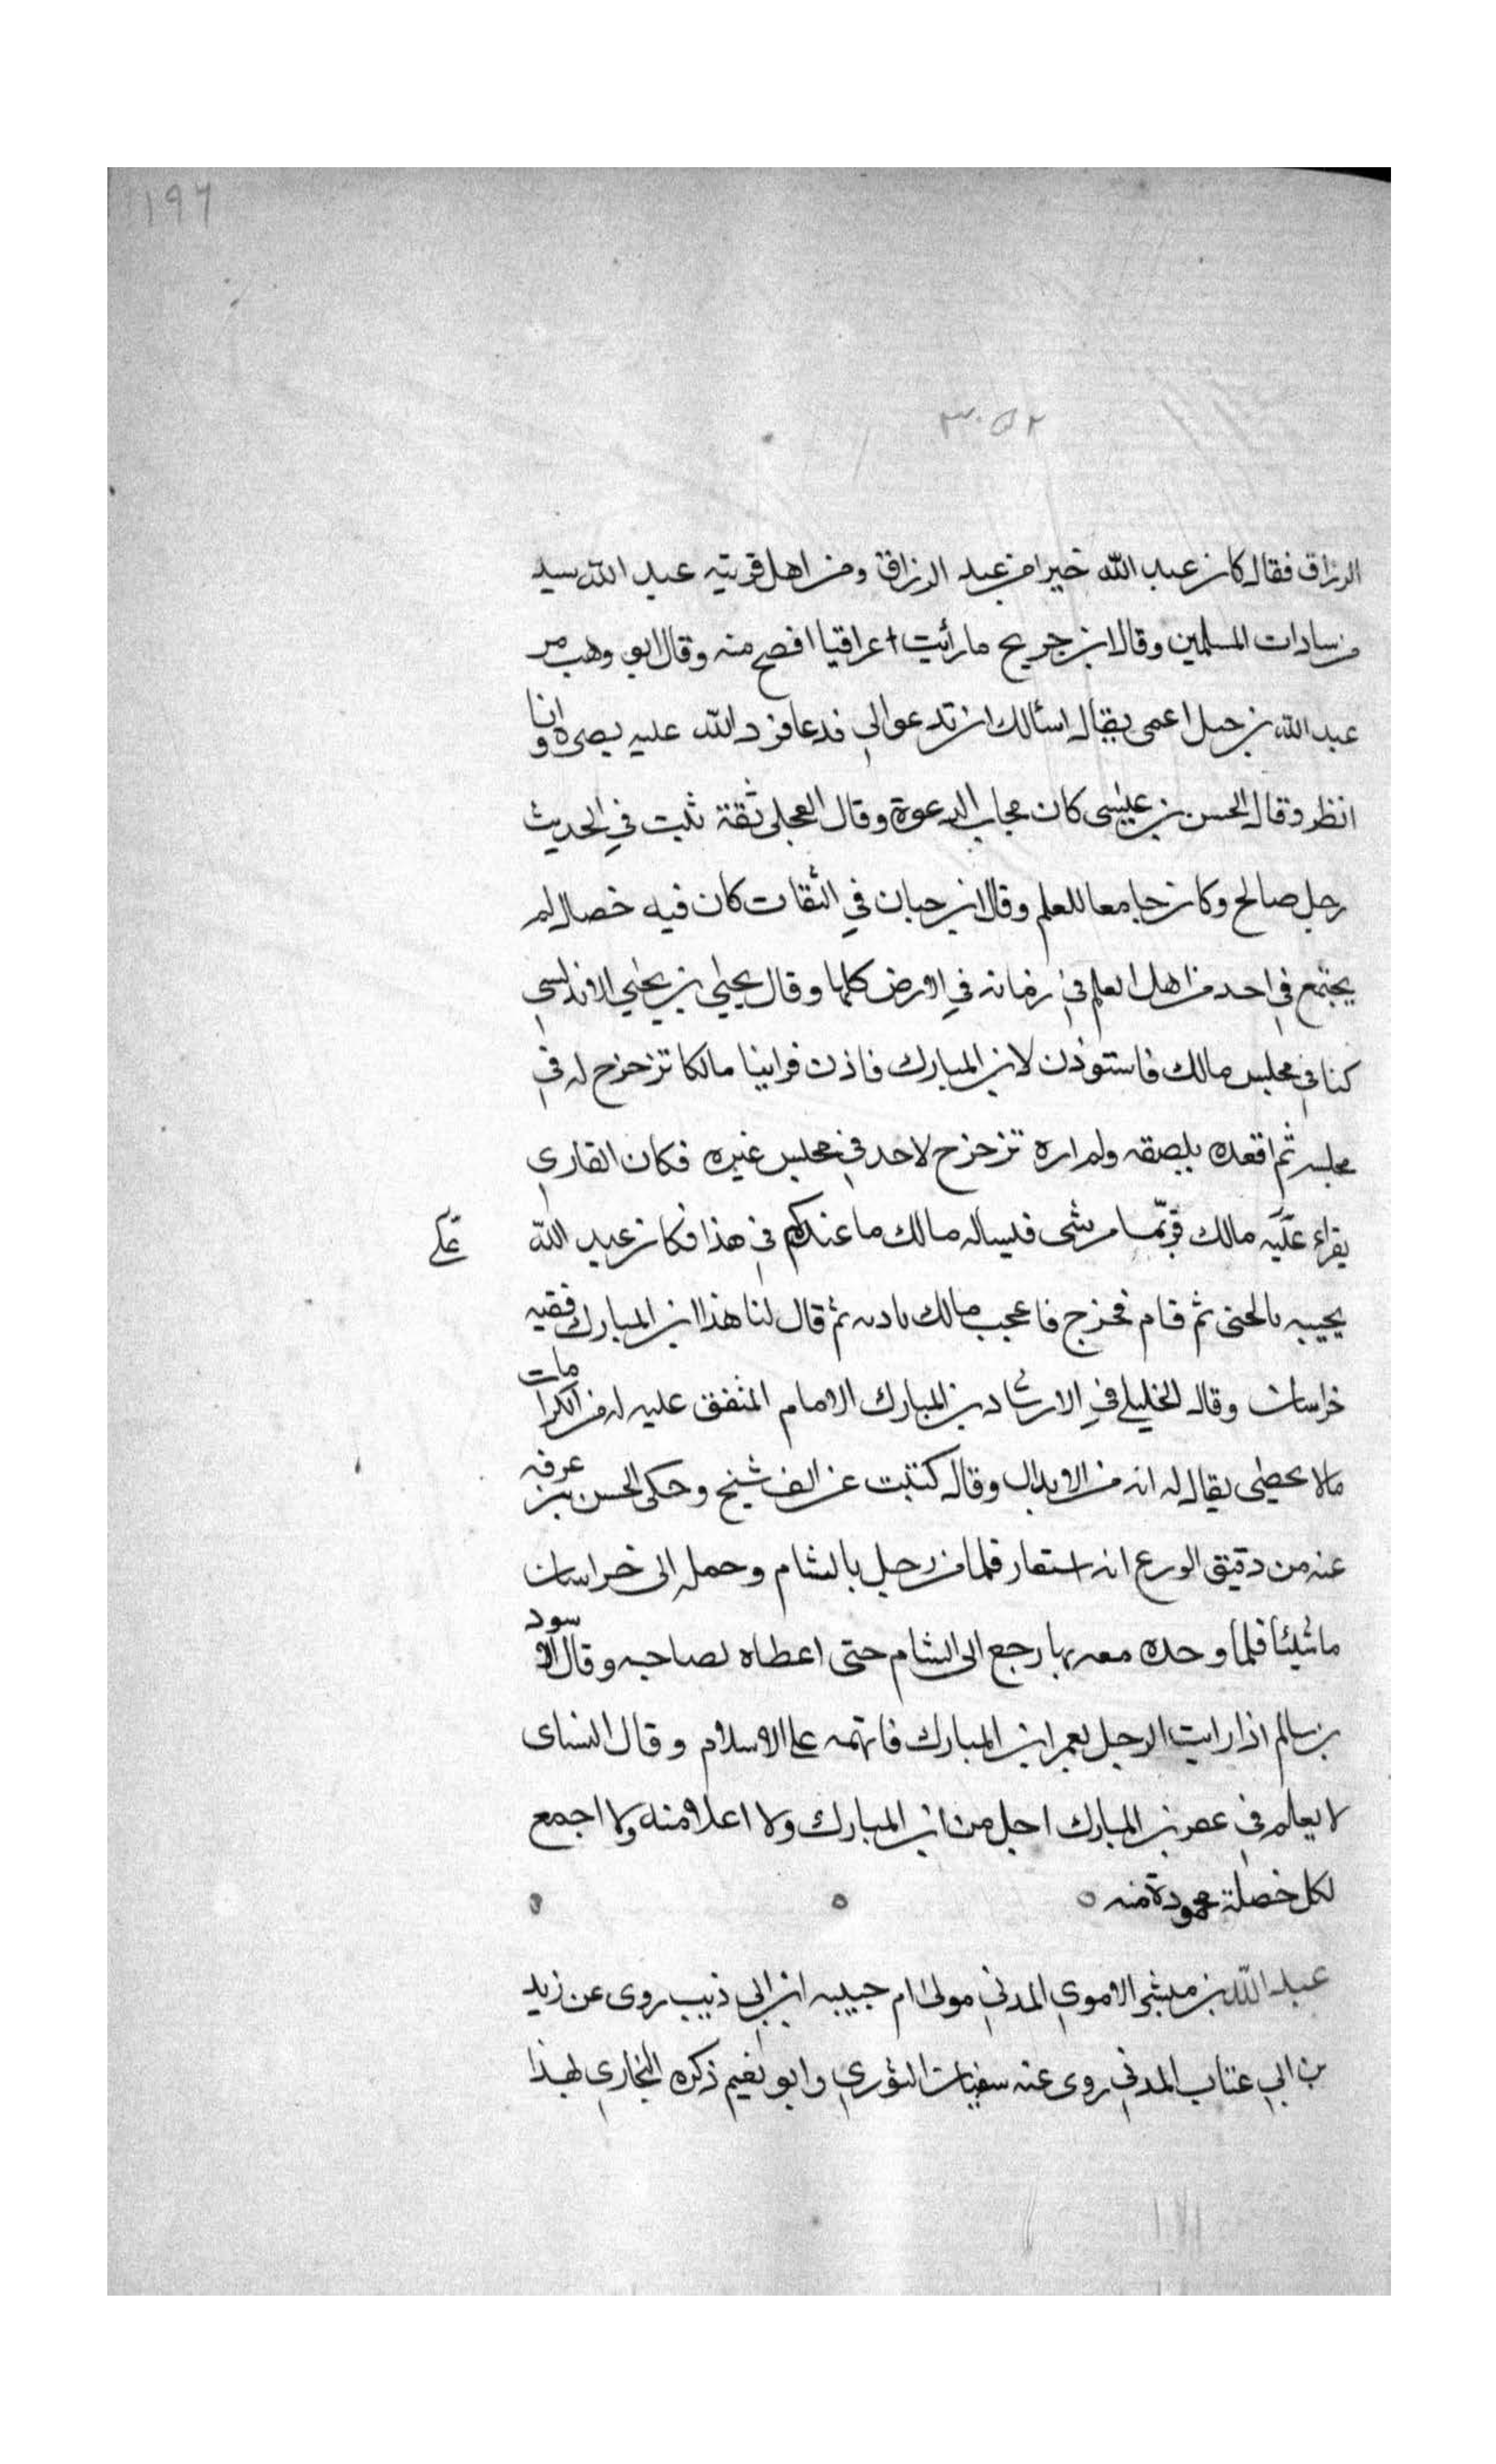 ١٩٦
٣٠٥٢
الرزاق فقال كان عبد الله خيرا من عبد الرزاق ومن اهل قريته عبد الله سيد
من سادات المسلمين وقال ابن جريج ما رأيت عراقيا افصح منه وقال ابو وهب مر
عبد الله بزجل اعمى يقال اسألك ان تدعوا لي فدعا فرد الله عليه بصره وانا
انظر وقال الحسن بن عيسى كان مجاب الدعوة وقال العجلي ثقة ثبت في الحديث
رجل صالح وكان جامعا للعلم وقال ابن حبان في الثقات كان فيه خصال لم
يجتمع في احد من اهل العلم في زمانه في الارض كلها وقال يحيى بن يحيى الاندلسي
كنا في مجلس مالك فاستوذن لابن المبارك فاذن فراينا مالكا تزحزح له في
مجلسه ثم اقعده بلصقه ولم اره تزحزح لاحد في مجلس غيره فكان القاري
يقراء عليه مالك فربما مر بشى فيساله مالك ما عندكم في هذا فكان عبد الله
على
يجيبه بالحنى ثم قام فخرج فاعجب مالك بادبه ثم قال لنا هذا ابن المبارك فقيه
خراسان وقال الخليلي في الارشاد بن المبارك الامام المتفق عليه له من الكرامات
مالا يحصى يقال له انه من الابدال وقال كتبت عن الف شيخ وحكى الحسن بن عرفه
عنه من دقيق الورع انه استعار قلما من رجل بالشام وحمله الى خراسان
ماشيئا فلما وجده معه بها رجع الى الشام حتى اعطاه لصاحبه وقال الاسود
بن سالم اذا رايت الرجل يغمز ابن المبارك فاتهمه على الاسلام وقال النساى
لا يعلم في عصر بن المبارك اجل من ابن المبارك ولا اعلا منه ولا اجمع
لكل خصلة محمودة منه
عبد الله بن مبشر الاموي المدني مولى ام حبيبه ابن ابي ذيب روى عن زيد
بن ابي عتاب المدني روى عنه سفيان الثوري وابو نعيم ذكره البخاري لهذا